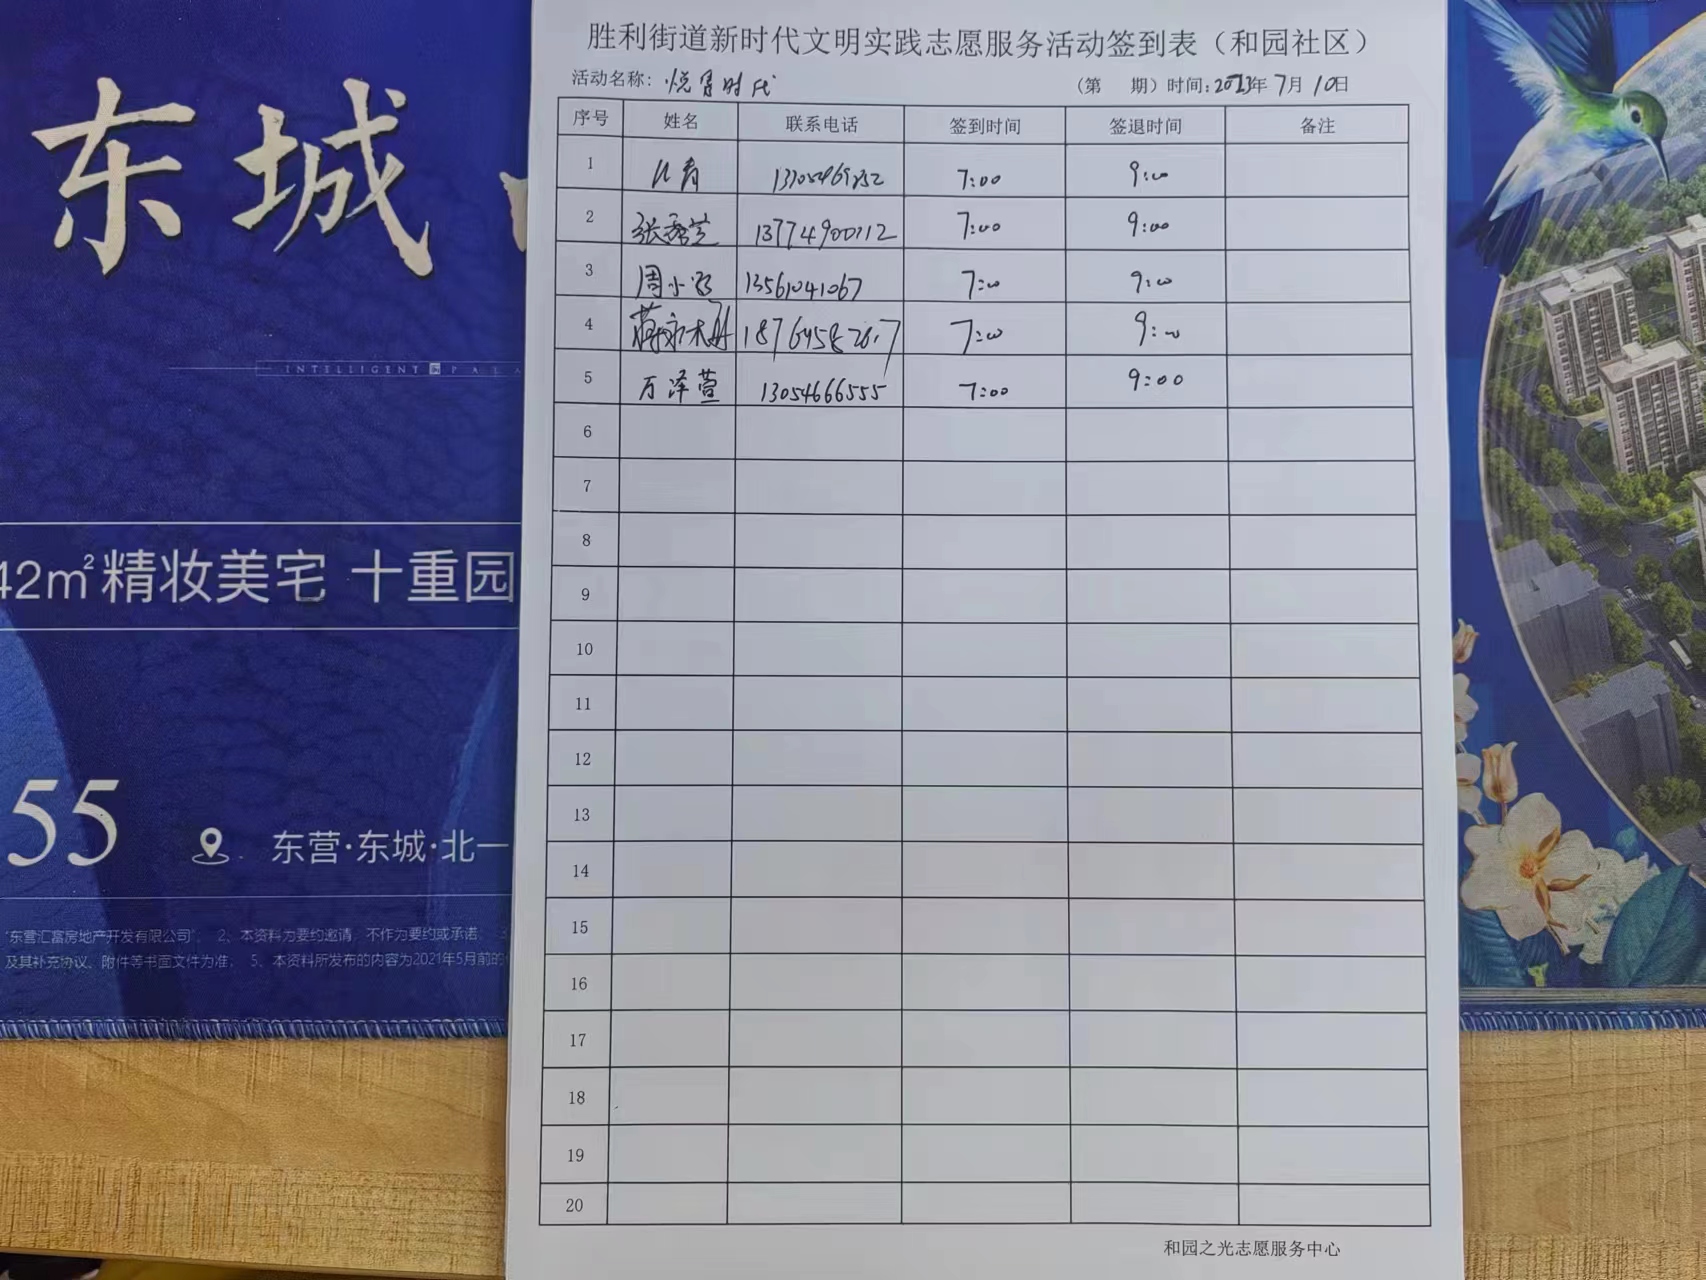 胜利街道新时代文明实践志愿服务活动签到表（和园社区）
活动名称：悦享时代 （第 期）时间：2023年7月10日
序号 姓名 联系电话 签到时间 签退时间 备注
1 7:00 9:00
2 张秀芝 13774900112 7:00 9:00
3 周小 13561041067 7:00 9:00
4 7:00 9:00
5 万泽萱 13054666555 7:00 9:00
6
7
8
9
10
11
12
13
14
15
16
17
18
19
20
和园之光志愿服务中心
东城
INTELLIGENT PALA
42m²精妆美宅 十重园
55
东营·东城·北一
"东营汇富房地产开发有限公司"； 2、本资料为要约邀请，不作为要约或承诺； 3
及其补充协议、附件等书面文件为准； 5、本资料所发布的内容为2021年5月前的